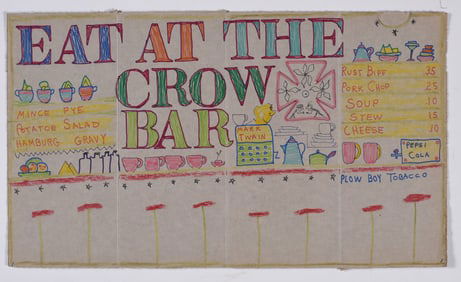 EAT AT THE
CROW
BAR
MINCE PYE
POTATOE SALAD
HAMBURG GRAVY
MARK
TWAIN
RUST BIFF 35
PORK CHOP 25
SOUP 10
STEW 15
CHEESE 10
PEPSI
COLA
PLOW BOY TOBACCO